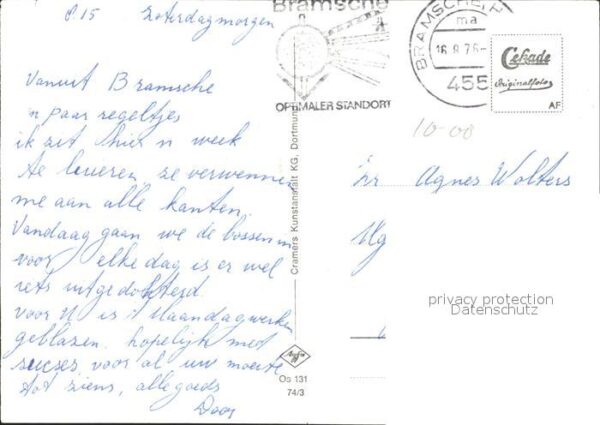 8.15 Zaterdagmorgen
Vanuit Bramsche
'n paar regeltjes
ik zit hier n week
te luieren, ze verwennen
me aan alle kanten.
Vandaag gaan we de bossen in
voor elke dag is er wel
iets uitgedokterd.
voor U is 't Maandagwerken
geblazen. hopelijk met
sucses, voor al uw moeite
tot ziens, alle goeds
Door
Bramsche
OPTIMALER STANDORT
BRAMSCHE
ma
16.8.76-
455
Cekade
Originalfoto
AF
10-00
Cramers Kunstanstalt KG, Dortmund
Zr Agnes Wolters
Os 131
74/3
privacy protection
Datenschutz